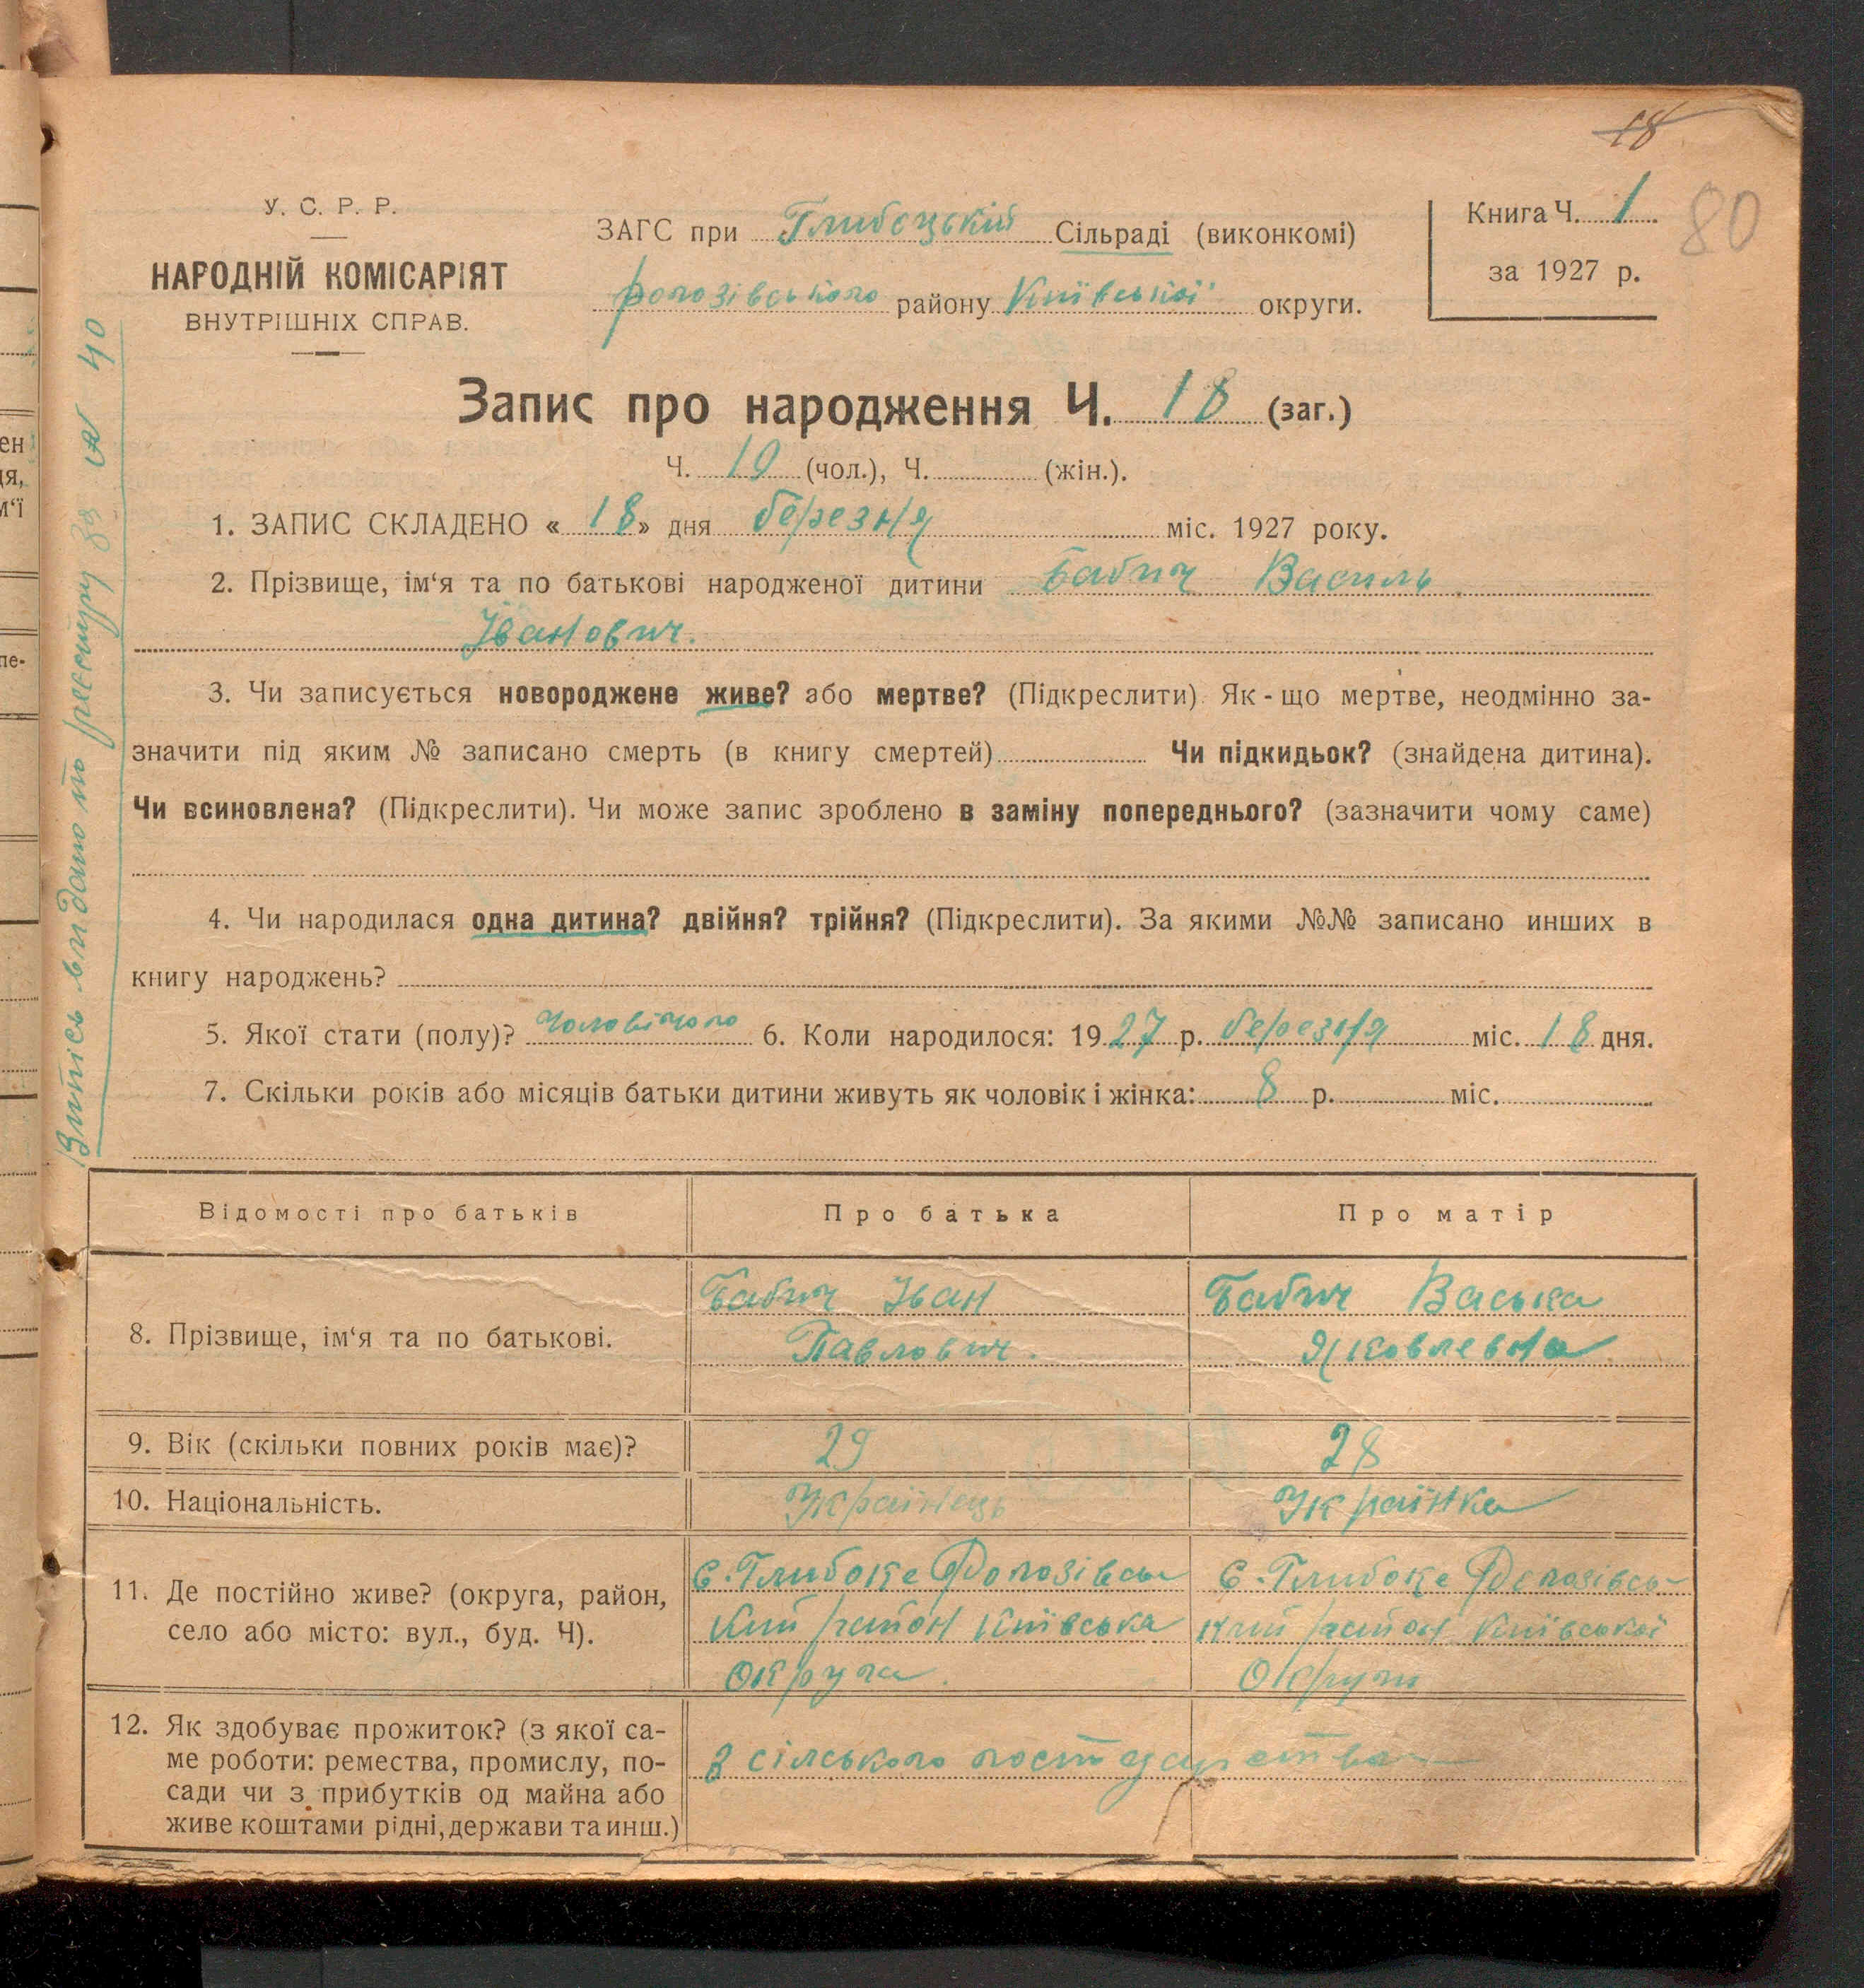 18
80
У. С. Р. Р.
НАРОДНІЙ КОМІСАРІЯТ
ВНУТРІШНІХ СПРАВ.
ЗАГС при Глибоцькій Сільраді (виконкомі)
рогозівського району Київської округи.
Книга Ч. 1.
за 1927 р.
Запис про народження Ч. 18 (заг.)
Ч. 10 (чол.), Ч. (жін.).
1. ЗАПИС СКЛАДЕНО « 18 » дня березня міс. 1927 року.
2. Прізвище, ім‘я та по батькові народженої дитини Бабич Василь
Іванович.
3. Чи записується новороджене живе? або мертве? (Підкреслити). Як-що мертве, неодмінно за-
значити під яким № записано смерть (в книгу смертей) Чи підкидьок? (знайдена дитина).
Чи всиновлена? (Підкреслити). Чи може запис зроблено в заміну попереднього? (зазначити чому саме)
4. Чи народилася одна дитина? двійня? трійня? (Підкреслити). За якими №№ записано инших в
книгу народжень?
5. Якої стати (полу)? чоловічого 6. Коли народилося: 1927 р. березня міс. 18 дня.
7. Скільки років або місяців батьки дитини живуть як чоловік і жінка: 8 р. міс.
Випісь видано по реєстру за № 40
Відомості про батьків
Про батька
Про матір
8. Прізвище, ім‘я та по батькові.
Бабич Іван
Павлович.
Бабич Васька
Яковлевна
9. Вік (скільки повних років має)?
29
28
10. Національність.
Українець
Українка
11. Де постійно живе? (округа, район,
село або місто: вул., буд. Ч).
с. Глибоке Рогозівсь-
кий район Київська
округа.
с. Глибоке Рогозівсь-
кий район Київської
Округи
12. Як здобуває прожиток? (з якої са-
ме роботи: ремества, промислу, по-
сади чи з прибутків од майна або
живе коштами рідні, держави та инш.)
з сілського господарства